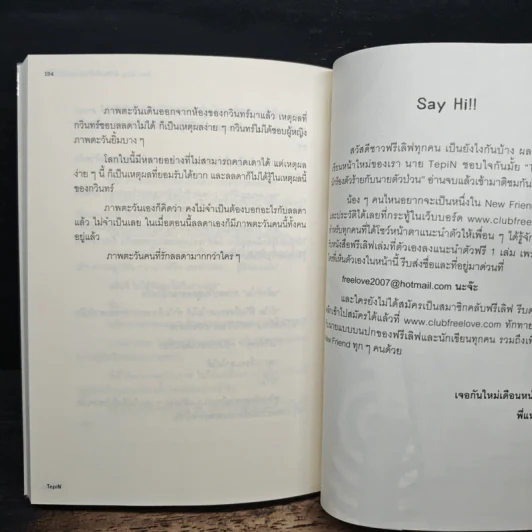 194
ภาพตะวันเดินออกจากห้องของกวินทร์มาแล้ว เหตุผลที่
กวินทร์ชอบลลดาไม่ได้ ก็เป็นเหตุผลง่าย ๆ กวินทร์ไม่ได้ชอบผู้หญิง
ภาพตะวันยิ้มบาง ๆ
โลกใบนี้มีหลายอย่างที่ไม่สามารถคาดเดาได้ แต่เหตุผล
ง่าย ๆ นี้ ก็เป็นเหตุผลที่ยอมรับได้ยาก และลลดาก็ไม่ได้รู้ในเหตุผลนี้
ของกวินทร์
ภาพตะวันเองก็คิดว่า คงไม่จำเป็นต้องบอกอะไรกับลลดา
แล้ว ไม่จำเป็นเลย ในเมื่อตอนนี้ลลดาเองก็มีภาพตะวันคนนี้ทั้งคน
อยู่แล้ว
ภาพตะวันคนที่รักลลดามากกว่าใคร ๆ
TepiN
Say Hi!!
สวัสดีชาวฟรีเลิฟทุกคน เป็นยังไงกันบ้าง ผล
เขียนหน้าใหม่ของเรา นาย TepiN ชอบใจกันมั้ย
เรื่องตัวร้ายกับนายตัวป่วน" อ่านจบแล้วเข้ามาติชมกัน
น้อง ๆ คนไหนอยากจะเป็นหนึ่งใน New Friend
และประวัติได้เลยที่กระทู้ในเว็บบอร์ด www.clubfree
สำหรับทุกคนที่ได้โชว์หน้าตาแนะนำตัวให้เพื่อน ๆ ได้รู้จัก
หนังสือฟรีเลิฟเล่มที่ตัวเองลงแนะนำตัวฟรี 1 เล่ม เพ
ที่เห็นตัวเองในหน้านี้ รีบส่งชื่อและที่อยู่มาด่วนที่
freelove2007@hotmail.com นะจ๊ะ
และใครยังไม่ได้สมัครเป็นสมาชิกคลับฟรีเลิฟ รีบด
เข้าไปสมัครได้แล้วที่ www.clubfreelove.com ทักทาย
นายแบบบนปกของฟรีเลิฟและนักเขียนทุกคน รวมถึงเพื่
New Friend ทุก ๆ คนด้วย
เจอกันใหม่เดือนหน้
พี่แน